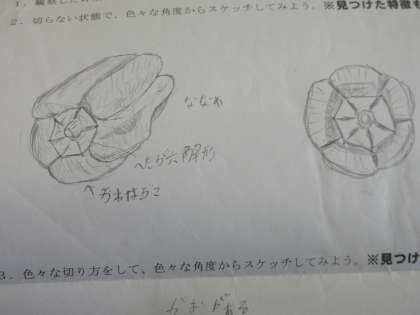 2. 切らない状態で、色々な角度からスケッチしてみよう。※見つけた特徴も
ななめ
へたが六角形
3. 色々な切り方をして、色々な角度からスケッチしてみよう。※見つけ